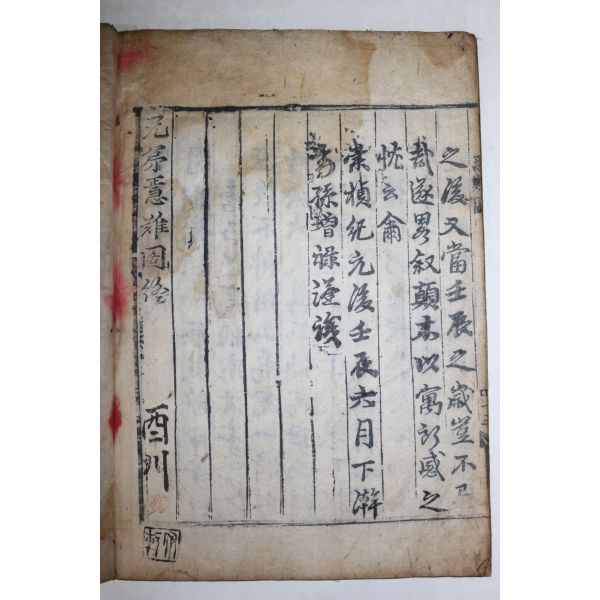 之後又當壬辰之歲豈不
哉遂畧叙顛末以寓所感之
忱云爾
崇禎紀元後壬辰六月下澣
孫增祿謹識
兄弟急難圖終
酉川